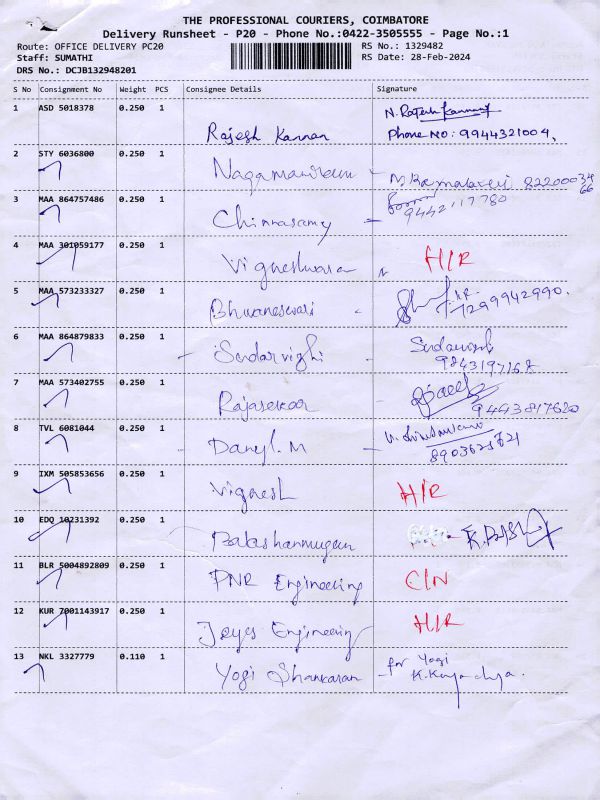 THE PROFESSIONAL COURIERS, COIMBATORE
Delivery Runsheet - P20 - Phone No.:0422-3505555 - Page No.:1
Route: OFFICE DELIVERY PC20 RS No.: 1329482
Staff: SUMATHI RS Date: 28-Feb-2024
DRS No.: DCJB132948201
S No Consignment No Weight PCS Consignee Details Signature
1 ASD 5018378 0.250 1 Rajesh Kannan N. Rajesh Kannan
Phone NO: 9944321004,
2 STY 6036800 0.250 1 Nagamaniram
3 MAA 864757486 0.250 1 Chinnasamy 9442117780
4 MAA 301059177 0.250 1 Vigneshwara H/R
5 MAA 573233327 0.250 1 Bhuvaneswari 7299942990.
6 MAA 864879833 0.250 1 Sudarvizhi
9843197168
7 MAA 573402755 0.250 1 Rajasekar 9443817620
8 TVL 6081044 0.250 1 Daniyl. M
9 IXM 505853656 0.250 1 Vignesh H/R
10 EDQ 10231392 0.250 1 Balashanmugam
11 BLR 5004892809 0.250 1 PNR Engineering C/N
12 KUR 7001143917 0.250 1 Jeyes Engineering H/R
13 NKL 3327779 0.110 1 Yogi Shankaran for Yogi